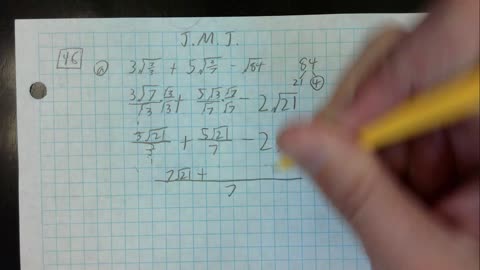 J.M.J.
46 a 3√7/3 + 5√3/7 - √84 84
3√7/√3 · √3/√3 + 5√3/√7 · √7/√7 - 2√21 21 4
3√21/3 + 5√21/7 - 2
7√21 +
7